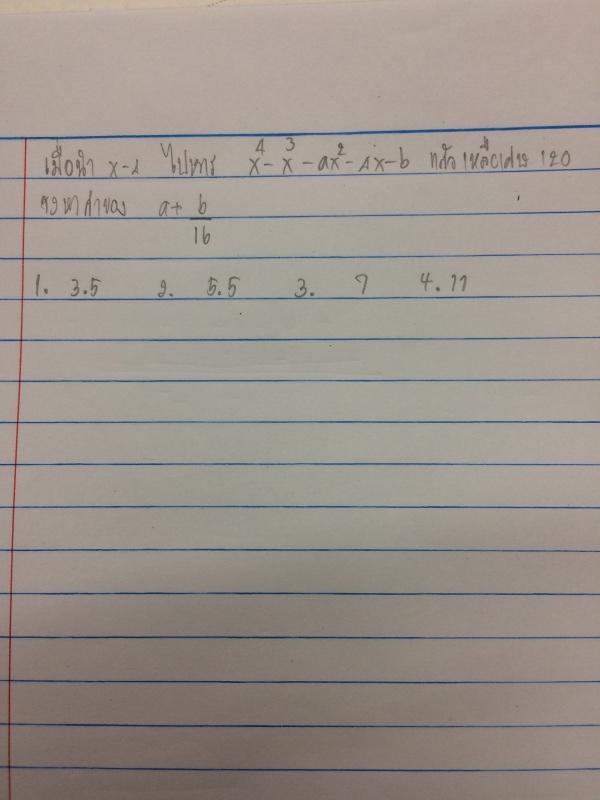 เมื่อนำ x-4 ไปหาร x⁴-x³-ax²-4x-b แล้วเหลือเศษ 120
จงหาค่าของ a+ b/16
1. 3.5 2. 5.5 3. 7 4. 11